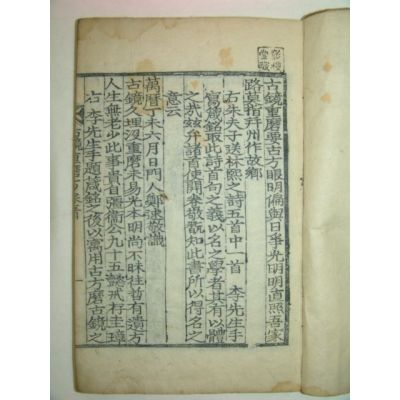 古鏡重磨要古方眼明偏與日爭光明明直照吾家
路莫指并州作故鄕
右朱夫子送林熙之詩五首中一首 李先生手
寫箴銘取此詩首句之義以名之學者其有以體
之哉玆弁諸首使開卷敬翫知此書所以得名之
意云
萬曆丁未六月日門人鄭逑敬識
古鏡久埋沒重磨未易光本明尚不昧往哲有遺方
人生無老少此事貴自彊衛公九十五懿戒存圭璋
右 李先生手題箴銘後以寓用古方磨古鏡之